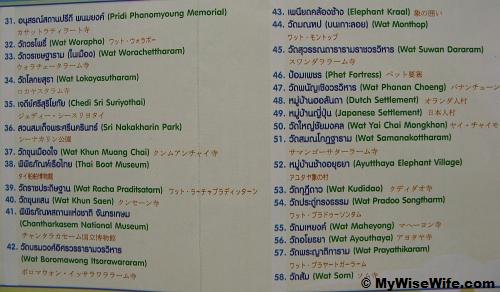 31. อนุสรณ์สถานปรีดี พนมยงค์ (Pridi Phanomyoung Memorial)
32. วัดวรโพธิ์ (Wat Worapho) ワット・ウォラポー
33. วัดวรเชษฐาราม (ในเมือง) (Wat Worachettharam)
ウォラチェータラーム寺
34. วัดโลกยสุธา (Wat Lokayasutharam)
ロカヤスタラーム寺
35. เจดีย์ศรีสุริโยทัย (Chedi Sri Suriyothai)
ジェディー・シースリヨタイ
36. สวนสมเด็จพระศรีนครินทร์ (Sri Nakakharin Park)
シーナカリン公園
37. วัดขุนเมืองใจ (Wat Khun Muang Chai) クンムアンチャイ寺
38. พิพิธภัณฑ์เรือไทย (Thai Boat Museum)
タイ船舶博物館
39. วัดราชประดิษฐาน (Wat Racha Praditsatarn) ワット・ラーチャプラディッターン
40. วัดขุนแสน (Wat Khun Saen) クンセーン寺
41. พิพิธภัณฑสถานแห่งชาติ จันทรเกษม
(Chantharkasem National Museum)
チャンタラカセーム国立博物館
42. วัดบรมวงศ์อิศรวรารามวรวิหาร
(Wat Boromawong Itsarawararam)
ボロマウォン・イッサラワララーム寺
43. เพนียดคล้องช้าง (Elephant Kraal) 象の囲い
44. วัดมณฑป (บนเกาะลอย) (Wat Monthop)
ワット・モントップ
45. วัดสุวรรณดารารามราชวรวิหาร (Wat Suwan Dararam)
スワンダララーム寺
46. ป้อมเพชร (Phet Fortress) ペット要塞
47. วัดพนัญเชิงวรวิหาร (Wat Phanan Choeng) パナンチェーン
48. หมู่บ้านฮอลันดา (Dutch Settlement) オランダ人村
49. หมู่บ้านญี่ปุ่น (Japanese Settlement) 日本人村
50. วัดใหญ่ชัยมงคล (Wat Yai Chai Mongkhon) ヤイ・チャイモ
51. วัดสมณโกฏฐาราม (Wat Samanakottharam)
サマンゴーサターラーム寺
52. หมู่บ้านช้างอยุธยา (Ayutthaya Elephant Village)
アユタヤ象の村
53. วัดกุฎีดาว (Wat Kudidao) クディダオ寺
54. วัดประดู่ทรงธรรม (Wat Pradoo Songtharm)
ワット・プラドゥーソンタム
55. วัดมเหยงค์ (Wat Maheyong) マヘーヨン寺
56. วัดอโยธยา (Wat Ayouthaya) アヨタヤ寺
57. วัดพระญาติการาม (Wat Prayathikaram)
ワット・プラヤートガーラーム
58. วัดส้ม (Wat Som) ソム寺
© MyWiseWife.com